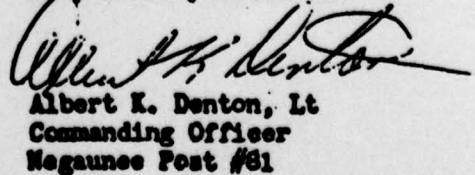 Albert K. Denton
Albert K. Denton, Lt
Commanding Officer
Negaunee Post #81